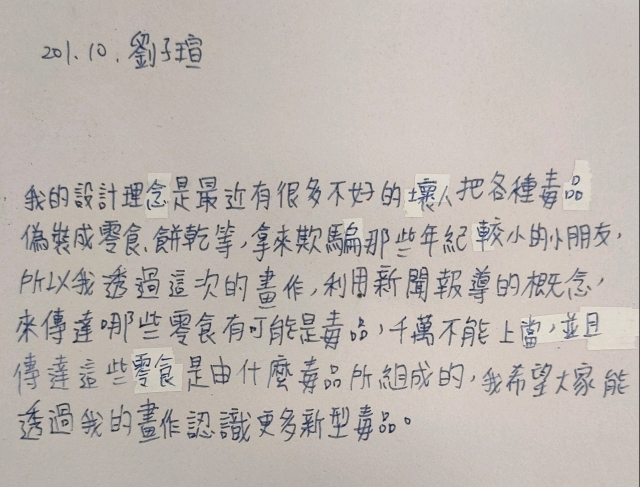 201.10.劉子瑄
我的設計理念是最近有很多不好的壞人把各種毒品
偽裝成零食、餅乾等,拿來欺騙那些年紀較小的小朋友,
所以我透過這次的畫作,利用新聞報導的概念,
來傳達哪些零食有可能是毒品,千萬不能上當,並且
傳達這些零食是由什麼毒品所組成的,我希望大家能
透過我的畫作認識更多新型毒品。